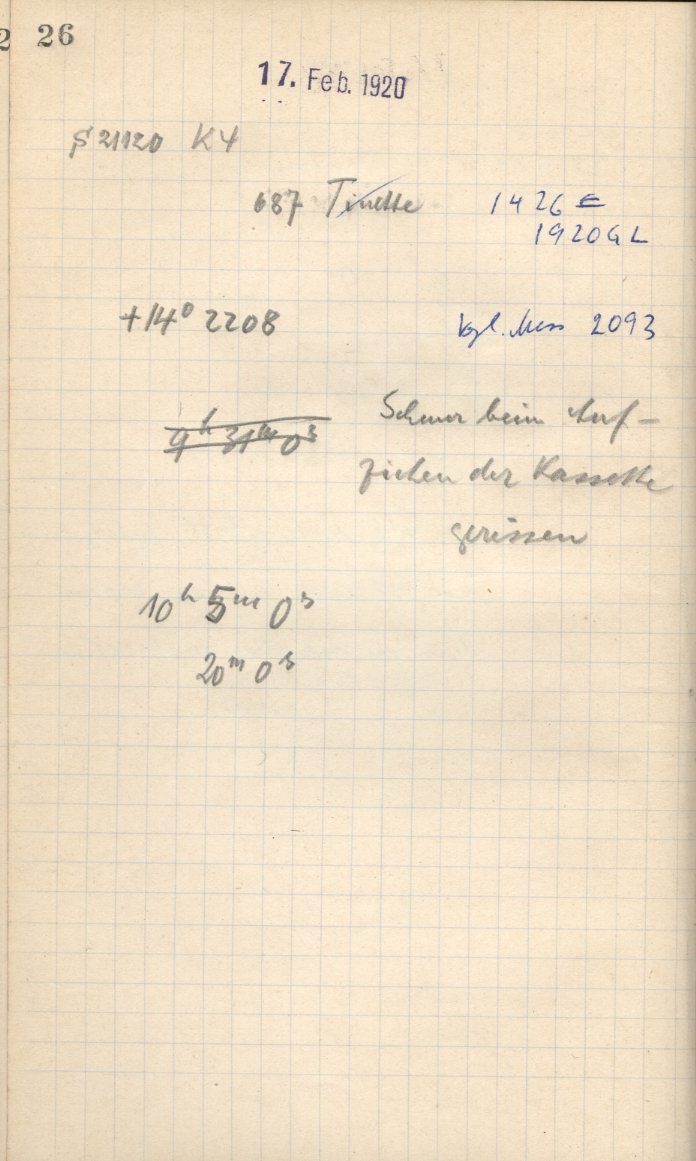 26
17. Feb. 1920
21120 K4
687 Tinette 1426 E
1920 GL
+14° 2208 vgl. Mess 2093
9h 31m 0s beim Auf-
ziehen der Kassette
gerissen
10h 5m 0s
20m 0s